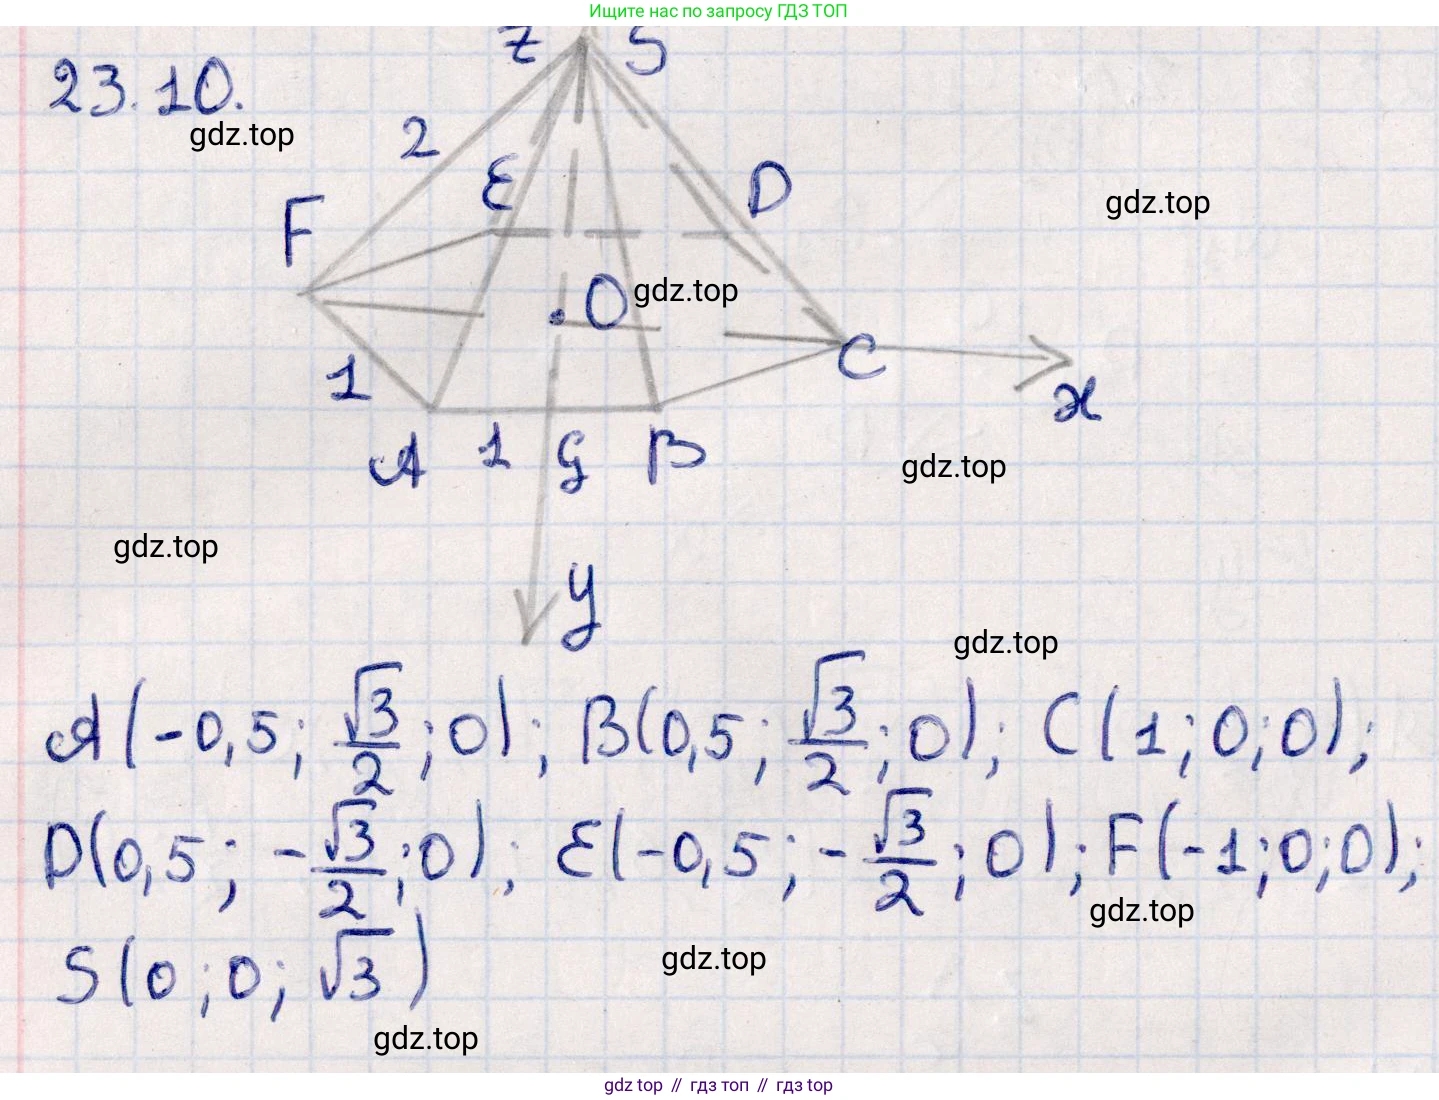 Ищите нас по запросу ГДЗ ТОП
z S
23.10.
gdz.top
2
E
D
gdz.top
F
O
gdz.top
1
C
x
A 1 G B
gdz.top
gdz.top
y
gdz.top
A(-0,5; √3/2; 0); B(0,5; √3/2; 0); C(1; 0; 0);
D(0,5; -√3/2; 0); E(-0,5; -√3/2; 0); F(-1; 0; 0);
gdz.top
S(0; 0; √3)
gdz.top
gdz.top
gdz top // гдз топ // gdz top